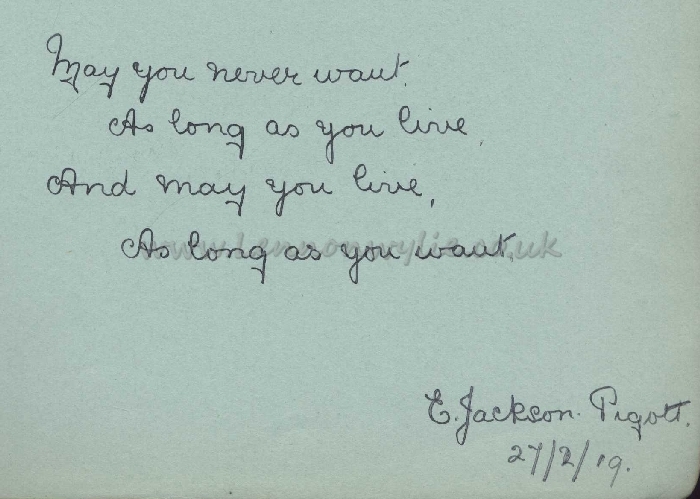 May you never want.
As long as you live,
And may you live,
As long as you want.
www.Lennonwylie.co.uk
E. Jackson. Pigott.
27/2/19.